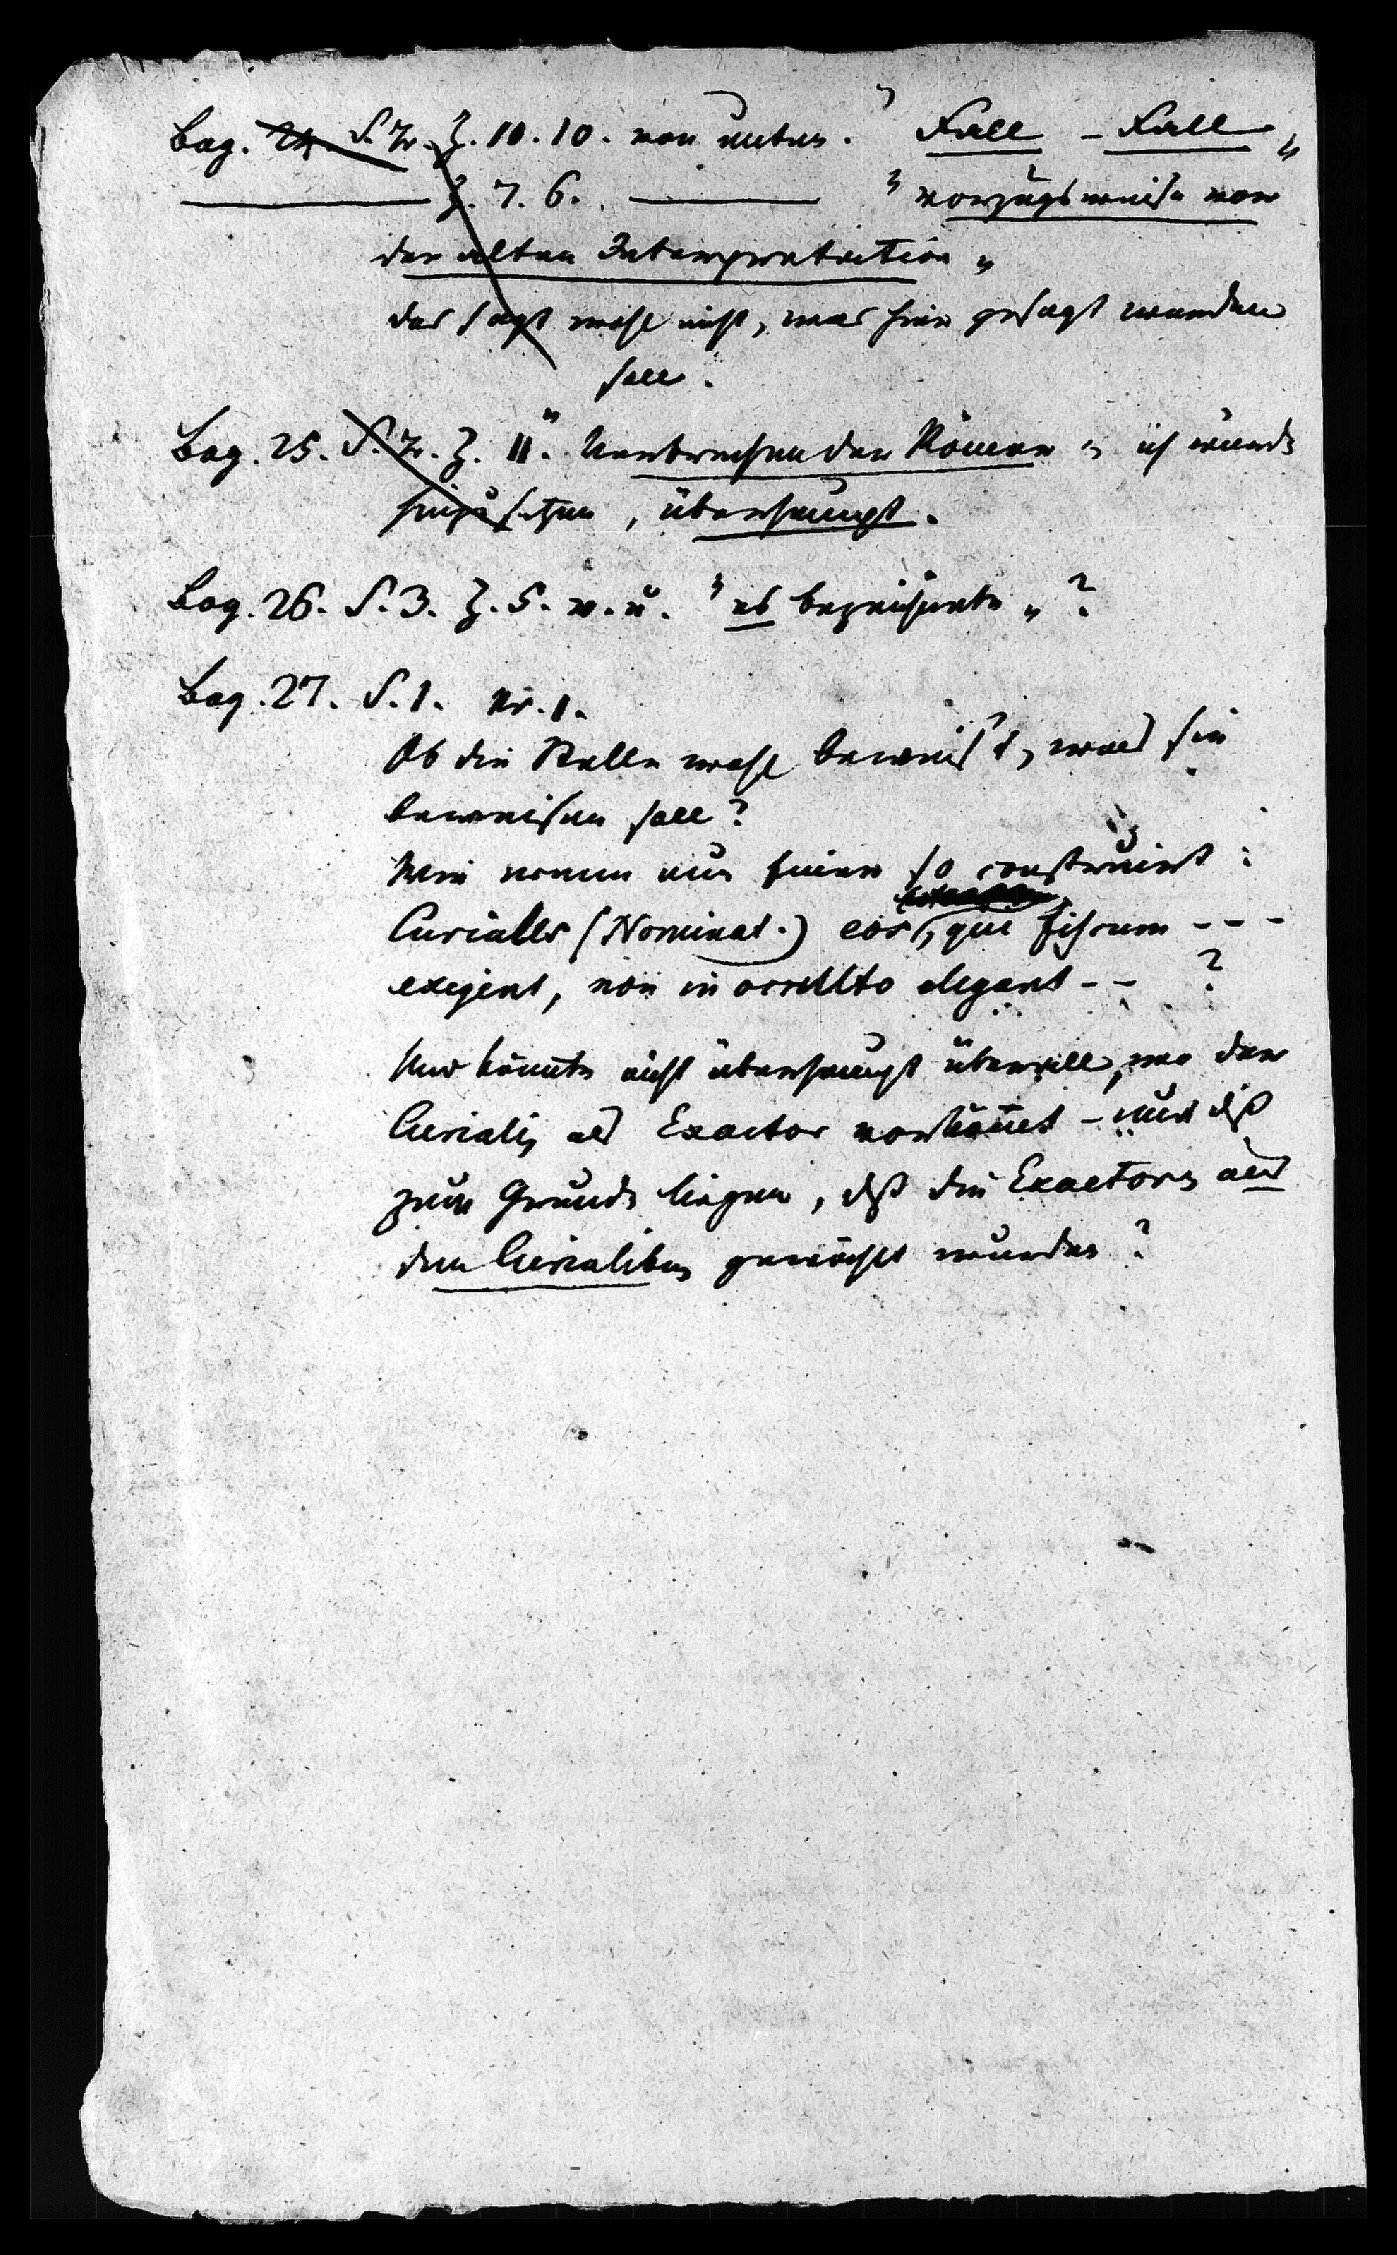 Bog. 24. S. 2. Z. 10. 10. von unten. "Fall – Fall"
Z. 7. 6. "vorzugsweise von
der alten Interpretation"
das sagt wohl nicht, was hier gesagt werden
soll.
Bog. 25. S. 2. Z. 11. "Verbrechen der Römer" ich würde
hinzusetzen, überhaupt.
Bog. 26. S. 3. Z. 5. v. u. "es bezeichnete"?
Bog. 27. S. 1. Nr. 1.
Ob die Stelle wohl beweis't, was sie
beweisen soll?
Wie wenn man so construirt:
Curiales (Nominat.) eos, qui fiscum – – –
exigent, non in occulto elegant – – ?
Und könnte nicht überhaupt überall, wo der
Curialis als Exactor vorkömt – nur dß
zum Grunde liegen, dß die Exactores aus
den Curialibus gewählt wurden?